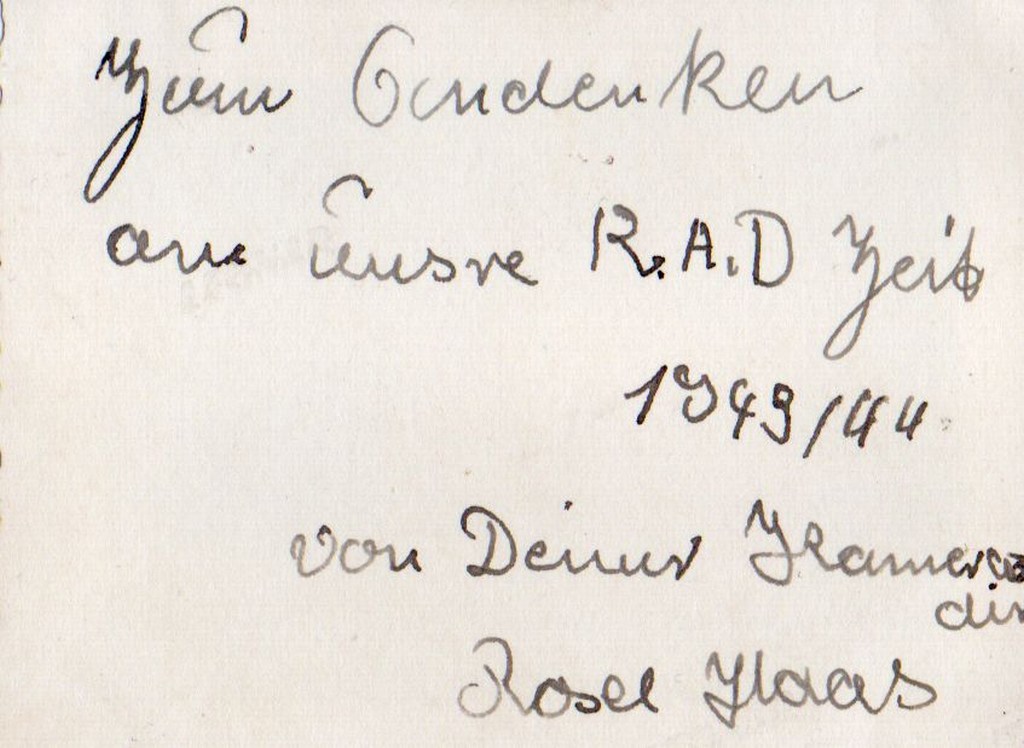 Zum Andenken
an unsre R.A.D Zeit
1943/44
von Deiner Kamera
din
Rosel Haas